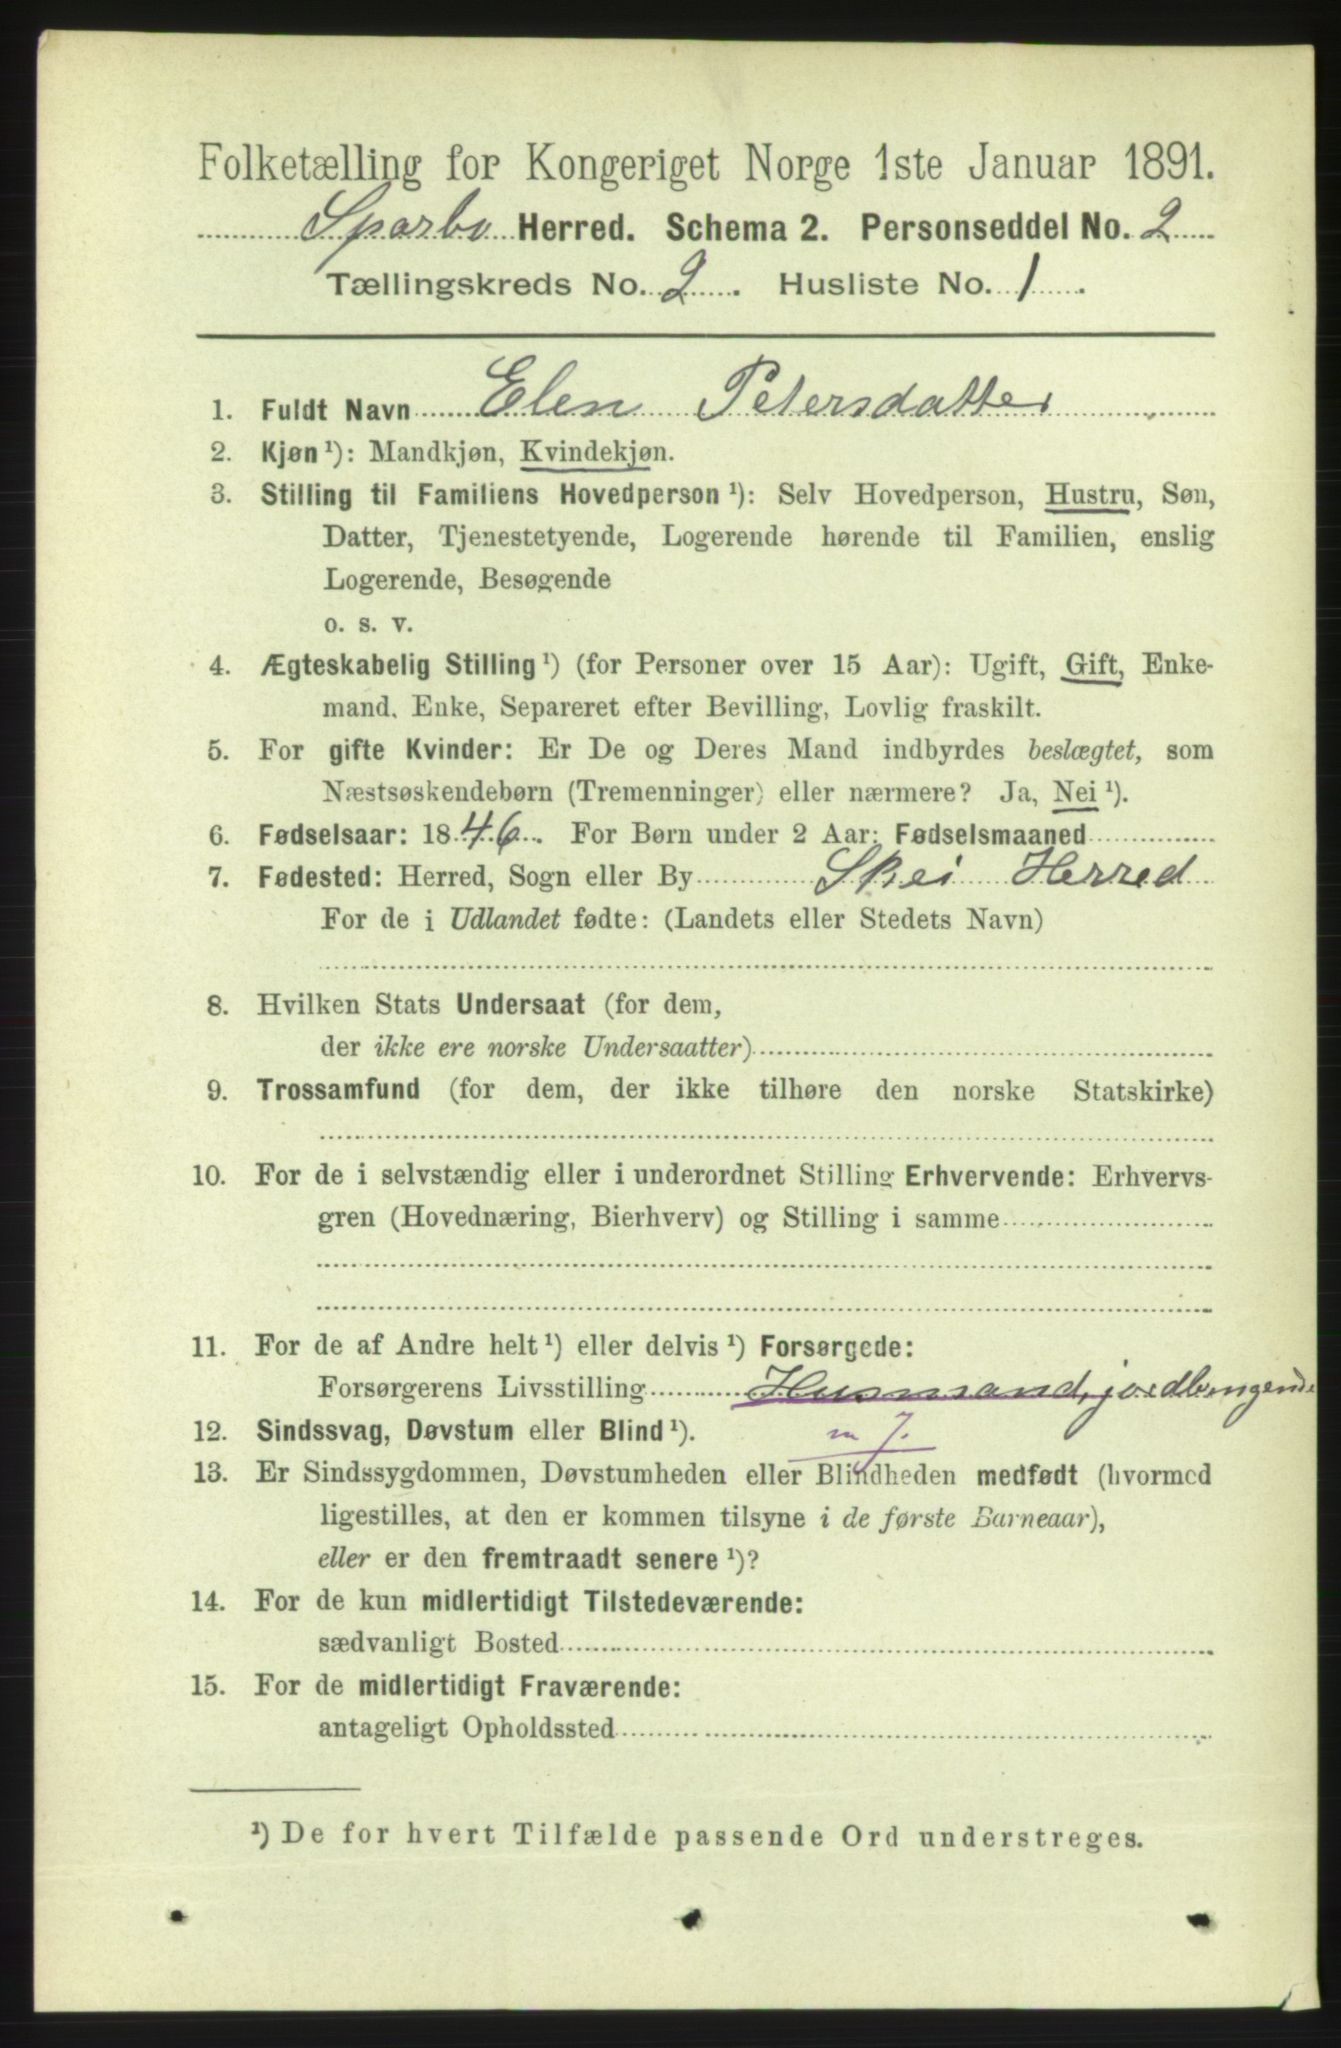 Folketælling for Kongeriget Norge 1ste Januar 1891.
Sparbu Herred. Schema 2. Personseddel No. 2
Tællingskreds No. 2. Husliste No. 1.
1. Fuldt Navn Elen Petersdatter
2. Kjøn ¹): Mandkjøn, Kvindekjøn.
3. Stilling til Familiens Hovedperson ¹): Selv Hovedperson, Hustru, Søn,
Datter, Tjenestetyende, Logerende hørende til Familien, enslig
Logerende, Besøgende
o. s. v.
4. Ægteskabelig Stilling ¹) (for Personer over 15 Aar): Ugift, Gift, Enke-
mand, Enke, Separeret efter Bevilling, Lovlig fraskilt.
5. For gifte Kvinder: Er De og Deres Mand indbyrdes beslægtet, som
Næstsøskendebørn (Tremenninger) eller nærmere? Ja, Nei ¹).
6. Fødselsaar: 1846. For Børn under 2 Aar: Fødselsmaaned
7. Fødested: Herred, Sogn eller By Skei Herred
For de i Udlandet fødte: (Landets eller Stedets Navn)
8. Hvilken Stats Undersaat (for dem,
der ikke ere norske Undersaatter)
9. Trossamfund (for dem, der ikke tilhøre den norske Statskirke)
10. For de i selvstændig eller i underordnet Stilling Erhvervende: Erhvervs-
gren (Hovednæring, Bierhverv) og Stilling i samme
11. For de af Andre helt ¹) eller delvis ¹) Forsørgede:
Forsørgerens Livsstilling Husmand, jordbrugende
12. Sindssvag, Døvstum eller Blind ¹). m 7.
13. Er Sindssygdommen, Døvstumheden eller Blindheden medfødt (hvormed
ligestilles, at den er kommen tilsyne i de første Barneaar),
eller er den fremtraadt senere ¹)?
14. For de kun midlertidigt Tilstedeværende:
sædvanligt Bosted
15. For de midlertidigt Fraværende:
antageligt Opholdssted
¹) De for hvert Tilfælde passende Ord understreges.